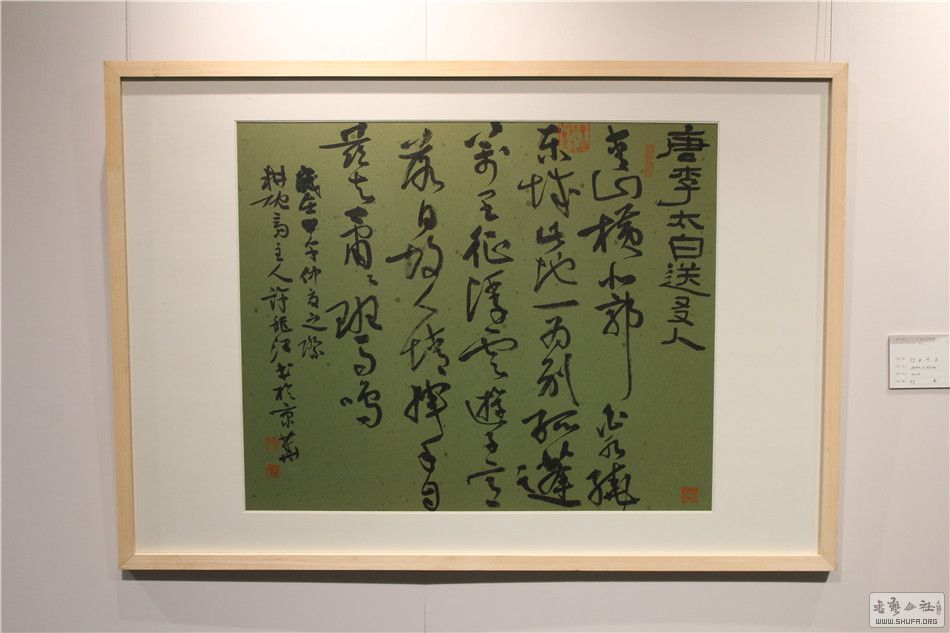 唐李太白送友人
青山横北郭 白水绕
东城此地一为别孤蓬
万里征浮云游子意
落日故人情挥手自
兹去萧々班马鸣
岁在甲午仲夏之际
主人许龙江书于京华
书法公社
WWW.SHUFA.ORG